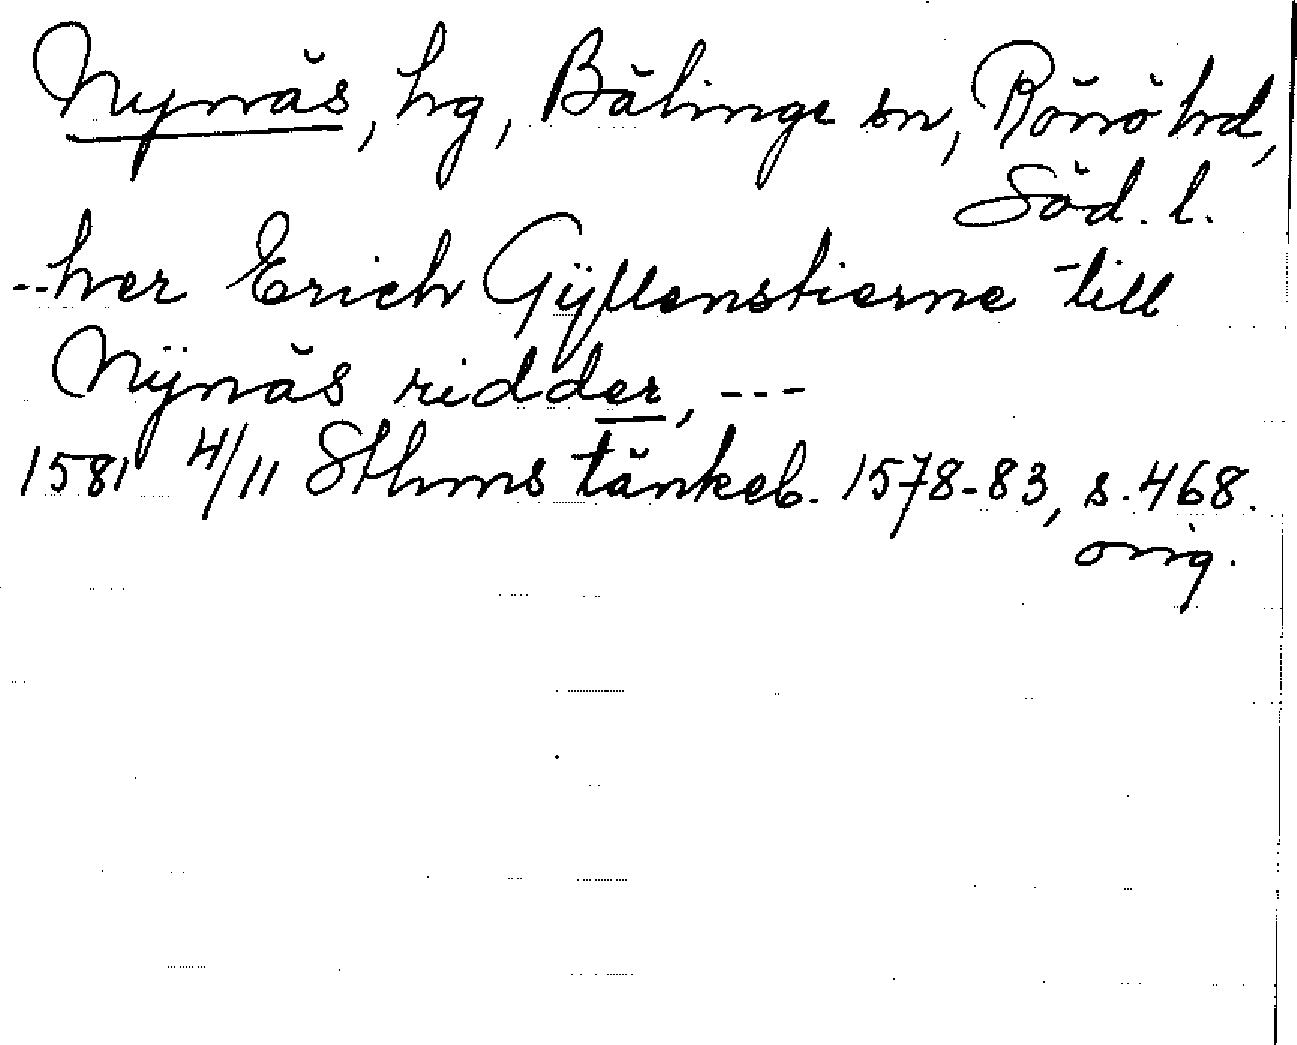 Nynäs, hg, Bälinge sn, Rönö hd,
Söd. l.
--her Erich Gÿllenstierne till
Nÿnäs ridder, ---
1581 4/11 Sthms tänkeb. 1578-83, s. 468.
orig.